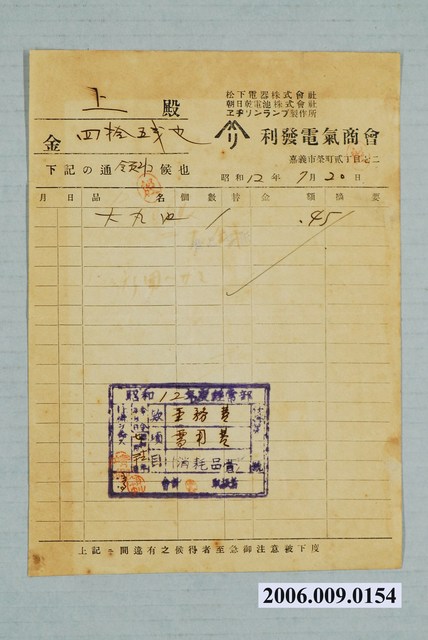 上 殿
松下電器株式會社
朝日乾電池株式會社
ヱヂソンランプ製作所
金 四拾五戋也
利發電氣商會
嘉義市榮町貳丁目七二
下記の通領收候也
昭和12年7月20日
月 日 品 名 個 數 替 金 額 摘 要
大丸口 1 .45
昭和12年度經常部
款
項 需用費
目 消耗品費
上記ニ間違有之候得者至急御注意被下度
2006.009.0154